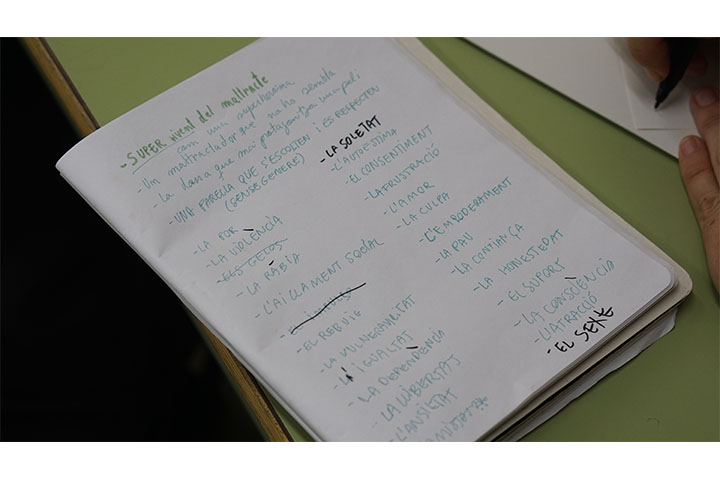 -SUPERvivent del maltracte
com una superheroïna
- Un maltractador que no ho sembla
- La dona que mai protagonitza cap peli
- UNA PARELLA QUE S'ESCOLTEN i ES RESPECTEN
(SENSE GENERE)
- LA POR
- LA VIOLÈNCIA
- ELS GELOS
- LA RÀBIA
- L'AILLAMENT SOCIAL
- EL REBUIG
- LA VULNERABILITAT
- LA IGUALTAT
- LA DEPENDÈNCIA
- LA LLIBERTAT
- L'ANSIETAT
- LA SOLETAT
- L'AUTOESTIMA
- EL CONSENTIMENT
- LA FRUSTRACIÓ
- L'AMOR
- LA CULPA
- L'EMPODERAMENT
- LA PAU
- LA CONFIANÇA
- LA HONESTEDAT
- EL SUPORT
- LA CONSCIÈNCIA
- L'ATRACCIÓ
- EL SEXE